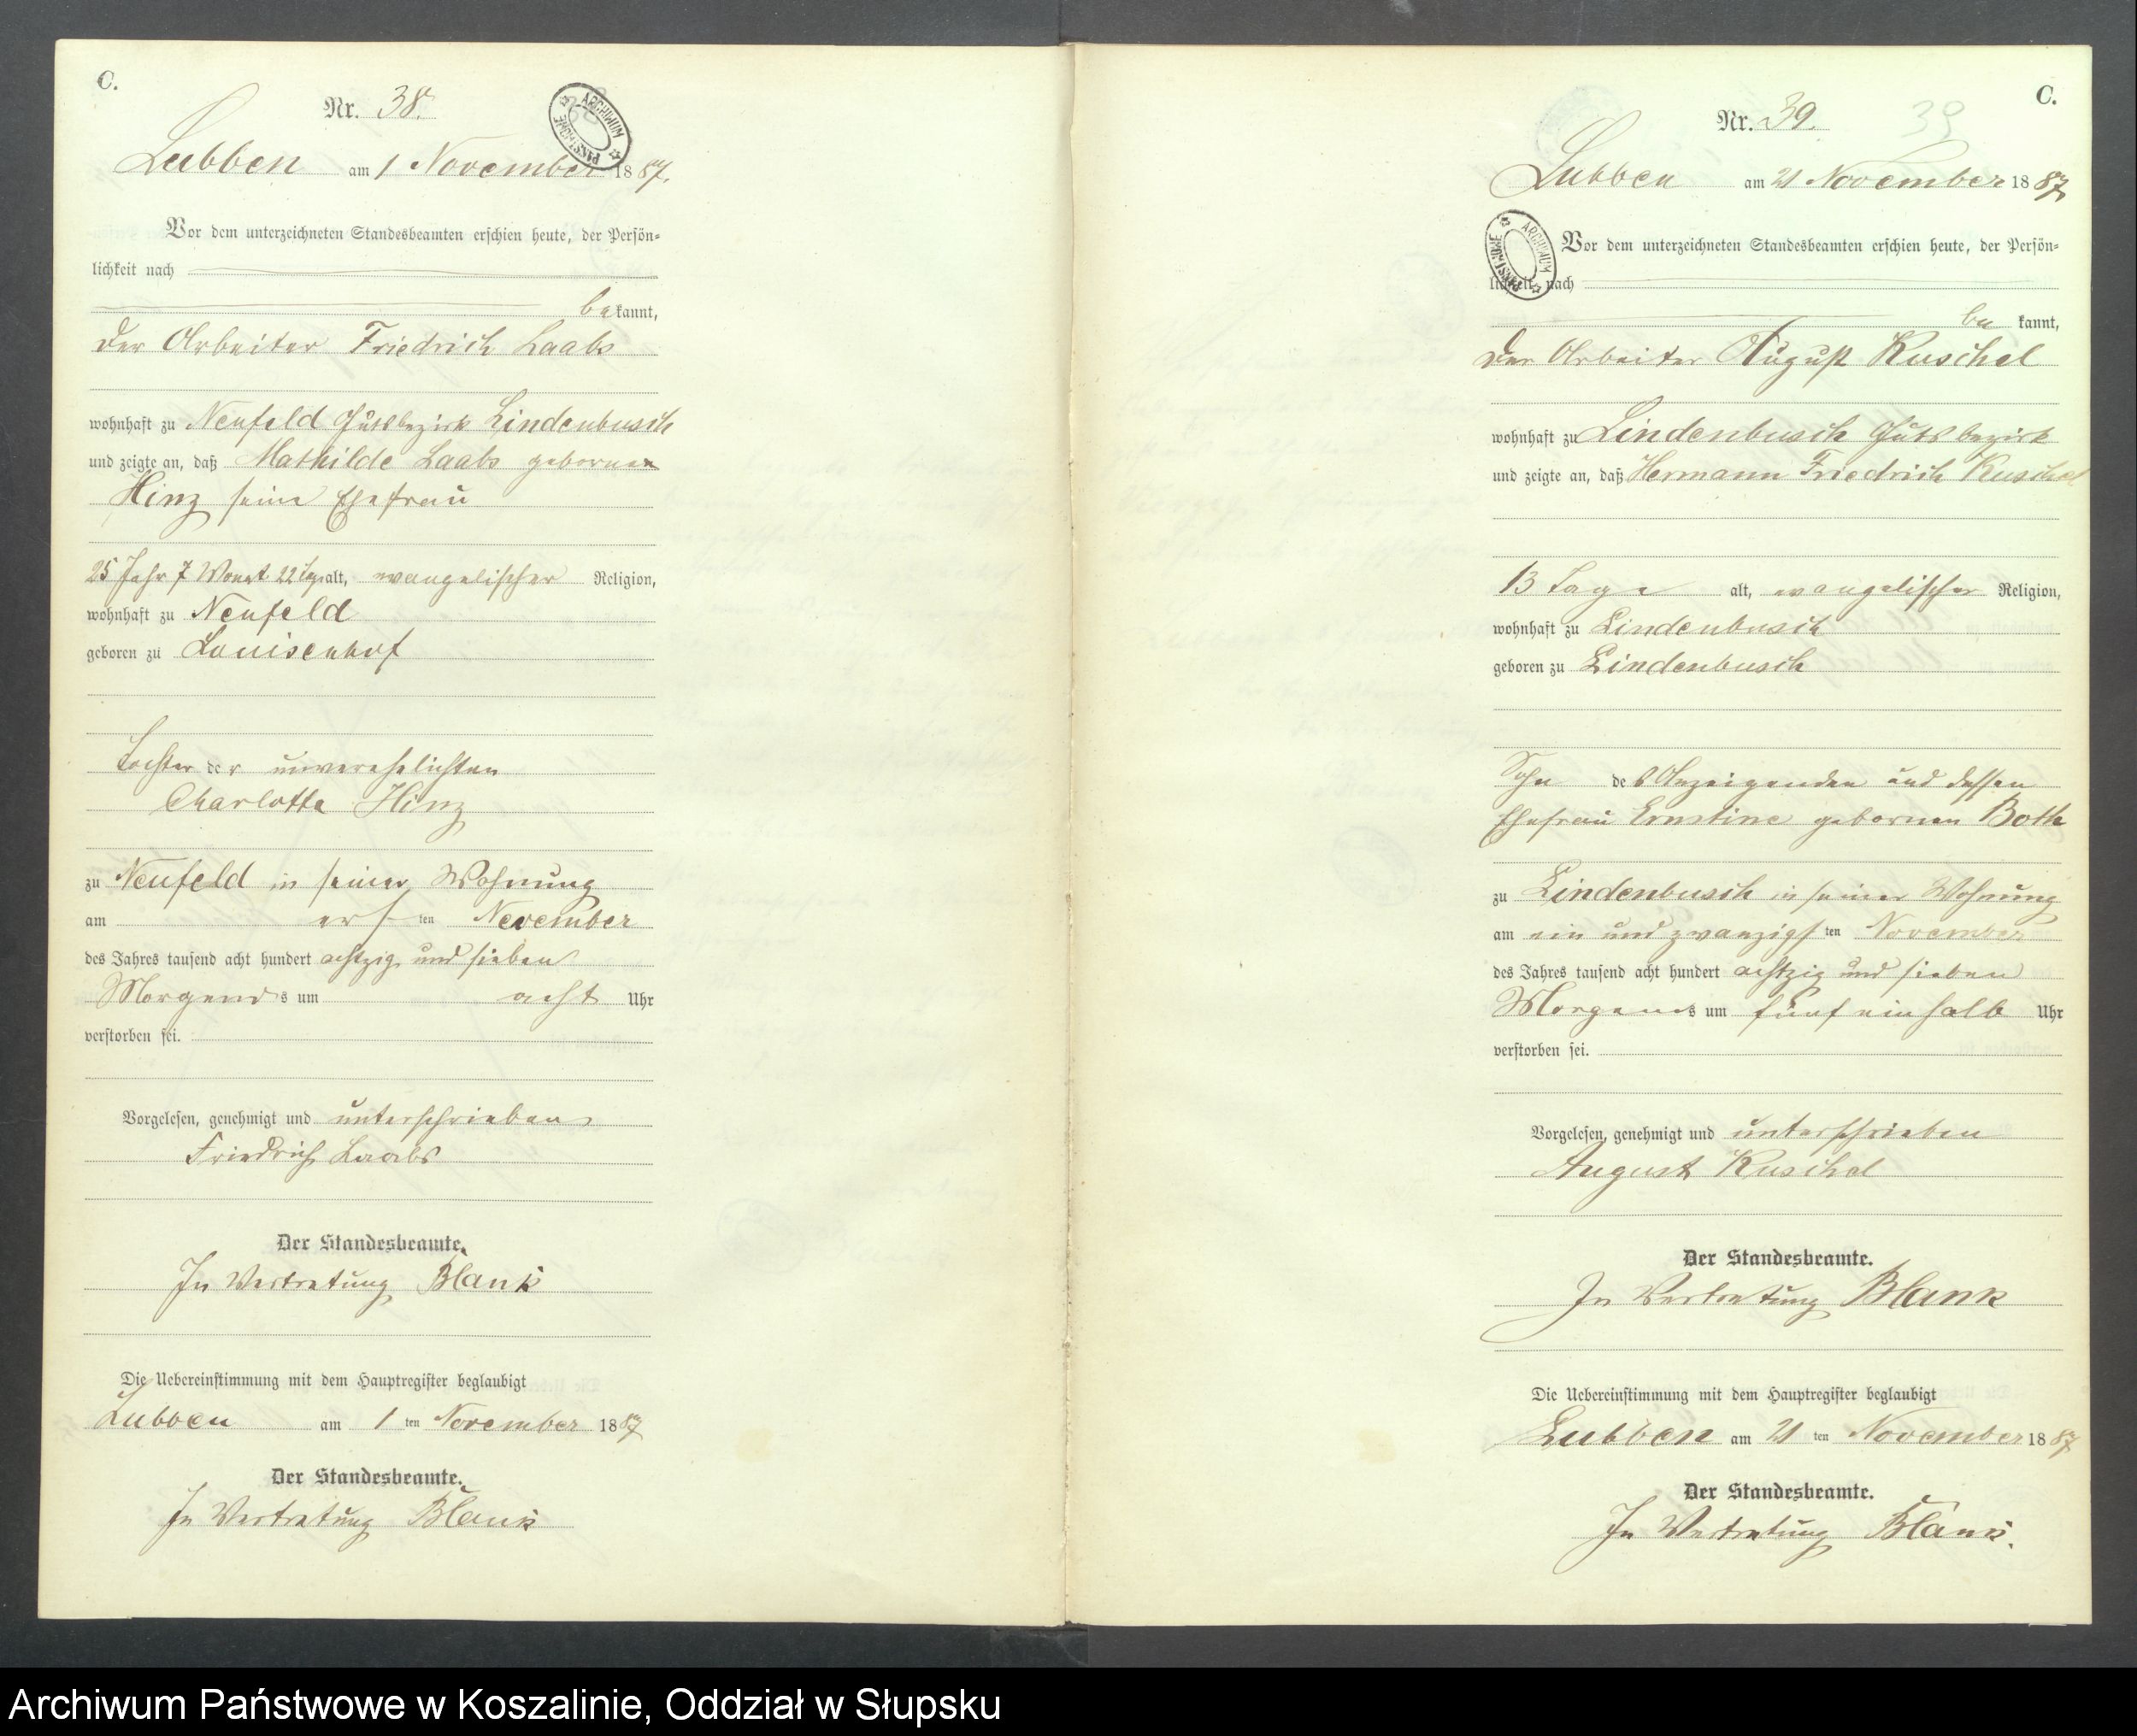 C.
Nr. 38.
ARCHIWUM PAŃSTWOWE
Lubben am 1 November 1887.
Vor dem unterzeichneten Standesbeamten erschien heute, der Persön-
lichkeit nach
bekannt,
der Arbeiter Friedrich Laabs
wohnhaft zu Neufeld Gutsbezirk Lindenbusch
und zeigte an, daß Mathilde Laabs geborenen
Hinz seine Ehefrau
25 Jahr 7 Monat 22 Tage alt, evangelischer Religion,
wohnhaft zu Neufeld
geboren zu Louisenhof
Tochter der unverehelichten
Charlotte Hinz
zu Neufeld in seiner Wohnung
am ersten November
des Jahres tausend acht hundert achtzig und sieben
Morgends um acht Uhr
verstorben sei.
Vorgelesen, genehmigt und unterschrieben
Friedrich Laabs
Der Standesbeamte.
In Vertretung Blank
Die Uebereinstimmung mit dem Hauptregister beglaubigt
Lubben am 1 ten November 1887
Der Standesbeamte.
In Vertretung Blank
C.
Nr. 39.
39
Lubben am 21 November 1887
ARCHIWUM PAŃSTWOWE
Vor dem unterzeichneten Standesbeamten erschien heute, der Persön-
lichkeit nach
be kannt,
der Arbeiter August Kuschel
wohnhaft zu Lindenbusch Gutsbezirk
und zeigte an, daß Hermann Friedrich Kuschel
13 Tage alt, evangelischer Religion,
wohnhaft zu Lindenbusch
geboren zu Lindenbusch
Sohn des Anzeigenden und dessen
Ehefrau Ernstine gebornen Both
zu Lindenbusch in seiner Wohnung
am ein und zwanzigsten November
des Jahres tausend acht hundert achtzig und sieben
Morgens um fünf ein halb Uhr
verstorben sei.
Vorgelesen, genehmigt und unterschrieben
August Kuschel
Der Standesbeamte.
In Vertretung Blank
Die Uebereinstimmung mit dem Hauptregister beglaubigt
Lubben am 21 ten November 1887
Der Standesbeamte.
In Vertretung Blank.
Archiwum Państwowe w Koszalinie, Oddział w Słupsku